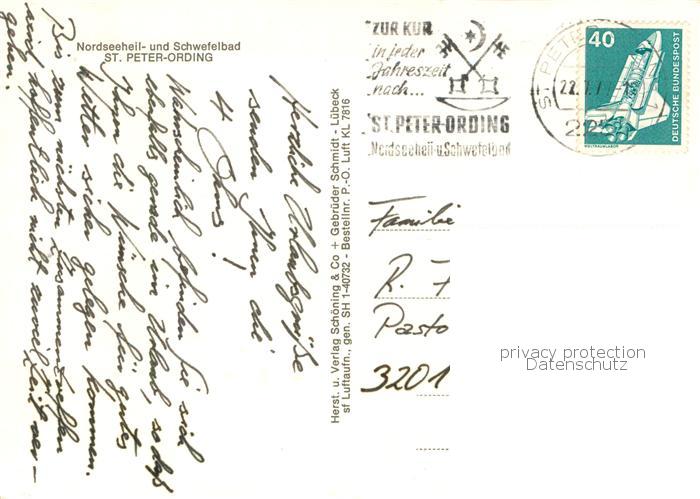 Nordseeheil- und Schwefelbad
ST. PETER-ORDING
Herzliche Urlaubsgrüße
senden Ihnen die
4
Wahrscheinlich befinden Sie sich
ebenfalls gerade im Urlaub, so daß
Ihnen die Wünsche für gutes
Wetter sicher gelegen kommen.
Bis zum nächsten Zusammentreffen
wird hoffentlich nicht zuviel Zeit ver-
gehen.
Herst. u. Verlag Schöning & Co + Gebrüder Schmidt - Lübeck
sf Luftaufn., gen. SH 1-40732 - Bestellnr. P.-O. Luft KL 7816
ZUR KUR
in jeder
Jahreszeit
nach...
ST. PETER-ORDING
Nordseeheil-u.Schwefelbad
ST. PETER
2252
40
DEUTSCHE BUNDESPOST
WELTRAUMLABOR
Familie
R. F
Pasto
3201
privacy protection
Datenschutz